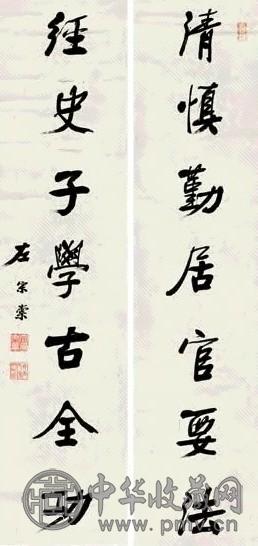 清慎勤居官要法
經史子學古全功
左宗棠
中华收藏网
www.pmcn.cn